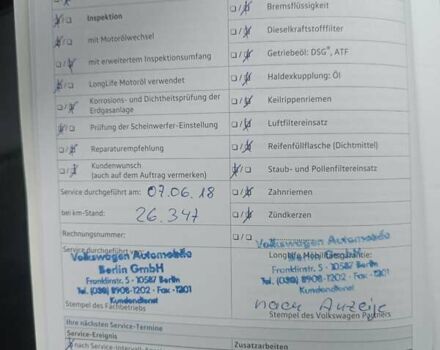 Inspektion
mit Motorölwechsel
mit erweitertem Inspektionsumfang
LongLife Motoröl verwendet
Korrosions- und Dichtheitsprüfung der
Erdgasanlage
Prüfung der Scheinwerfer-Einstellung
Reparaturempfehlung
Kundenwunsch
(auch auf dem Auftrag vermerken)
Service durchgeführt am: 07.06.18
bei km-Stand: 26.347
Rechnungsnummer:
Service durchgeführt von:
Volkswagen Automobile
Berlin GmbH
Franklinstr. 5 · 10587 Berlin
Tel. (030) 8908-1202 · Fax -1201
Kundendienst
Stempel des Fachbetriebs
Bremsflüssigkeit
Dieselkraftstofffilter
Getriebeöl: DSG®, ATF
Haldexkupplung: Öl
Keilrippenriemen
Luftfiltereinsatz
Reifenfüllflasche (Dichtmittel)
Staub- und Pollenfiltereinsatz
Zahnriemen
Zündkerzen
LongLife Mobilitätsgarantie:
Volkswagen Automobile
Berlin GmbH
Franklinstr. 5 · 10587 Berlin
Tel. (030) 8908-1202 · Fax -1201
Kundendienst
nach Anzeige
Stempel des Volkswagen Partners
Ihre nächsten Service-Termine
Service-Ereignis
Zusatzarbeiten
nach Service-Intervall-